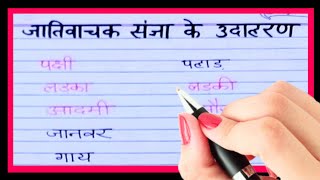 जातिवाचक संज्ञा के उदाहरण
पक्षी पहाड़
लड़का लड़की
आदमी
जानवर
गाय